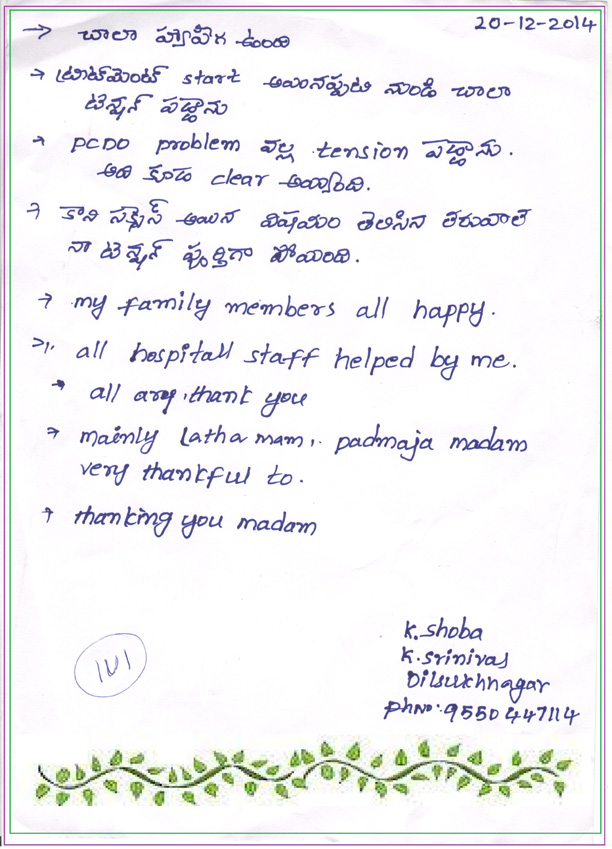 20-12-2014
→ చాలా హ్యాపీగ ఉంది
→ ట్రీట్‌మెంట్ start అయినప్పటి నుండి చాలా
టెన్షన్ పడ్డాను
→ PCDO problem వల్ల tension పడ్డాను.
అది కూడ clear అయ్యింది.
→ కాని సక్సెస్ అయిన విషయం తెలిసిన తరువాత
నా టెన్షన్ పూర్తిగా పోయింది.
→ my family members all happy.
→ all hospitall staff helped by me.
→ all thank you
→ mainly Latha mam, padmaja madam
very thankful to.
→ thanking you madam
K. Shoba
K. Srinivas
Dilsukhnagar
Ph No: 9550447114